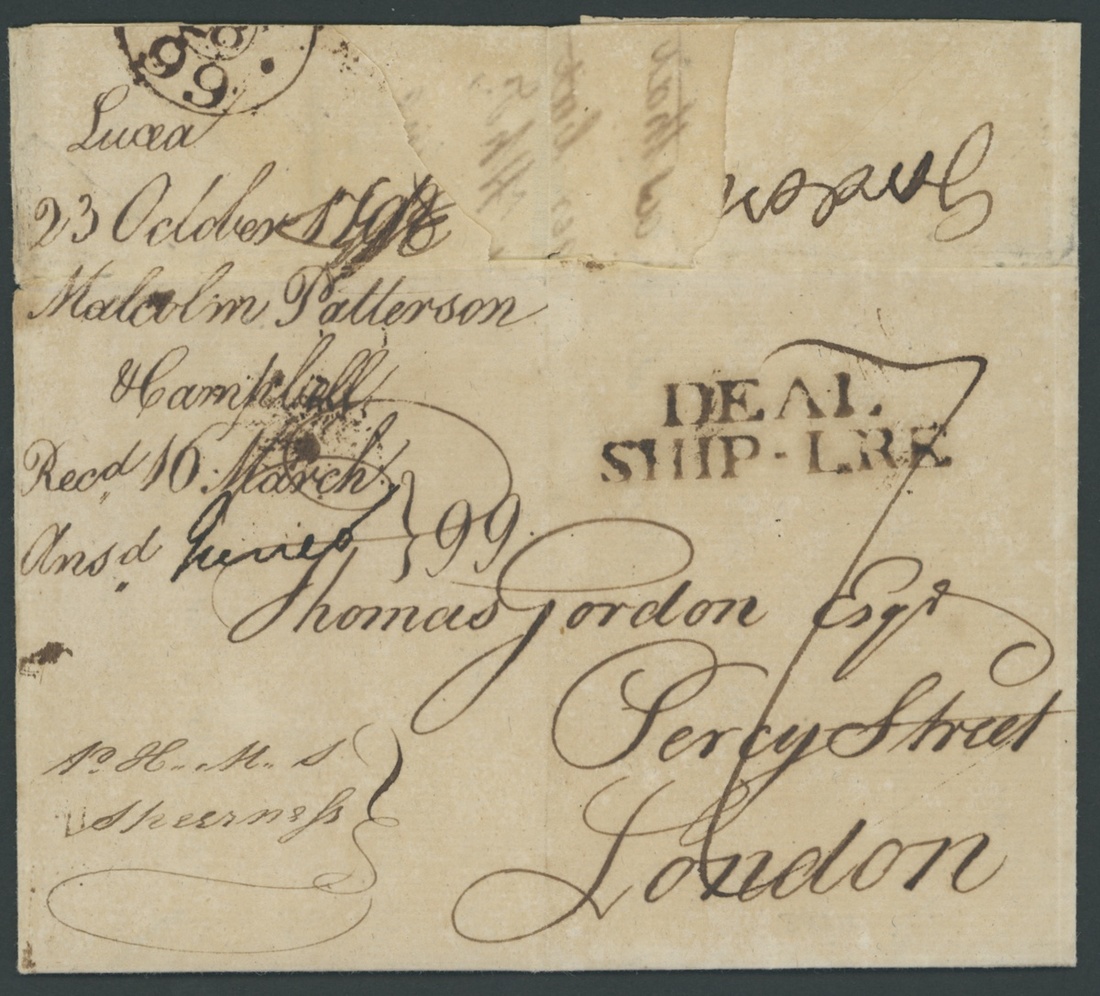 99
Lucea
23 October 1798
Malcolm Patterson
& Campbell
Recd 10 March
Ansd
} 99
DEAL
SHIP-LRE
7
Thomas Gordon Esqr
Percy Street
London
pr H.. M.. S.
Sheerness